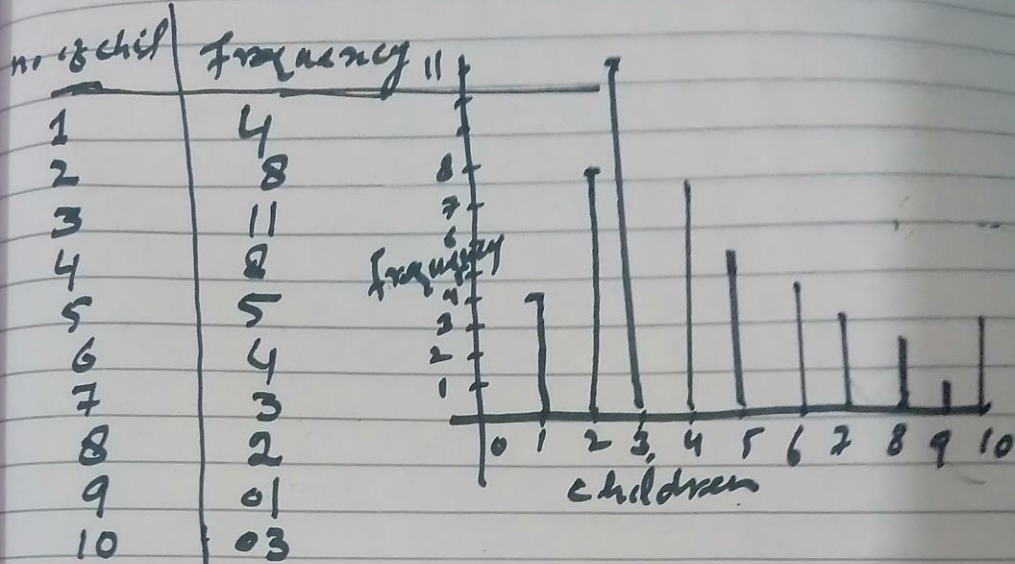 no of chil frequency
1 4
2 8
3 11
4 8
5 5
6 4
7 3
8 2
9 01
10 03
11
8
7
6
frequency
4
3
2
1
0 1 2 3 4 5 6 7 8 9 10
children